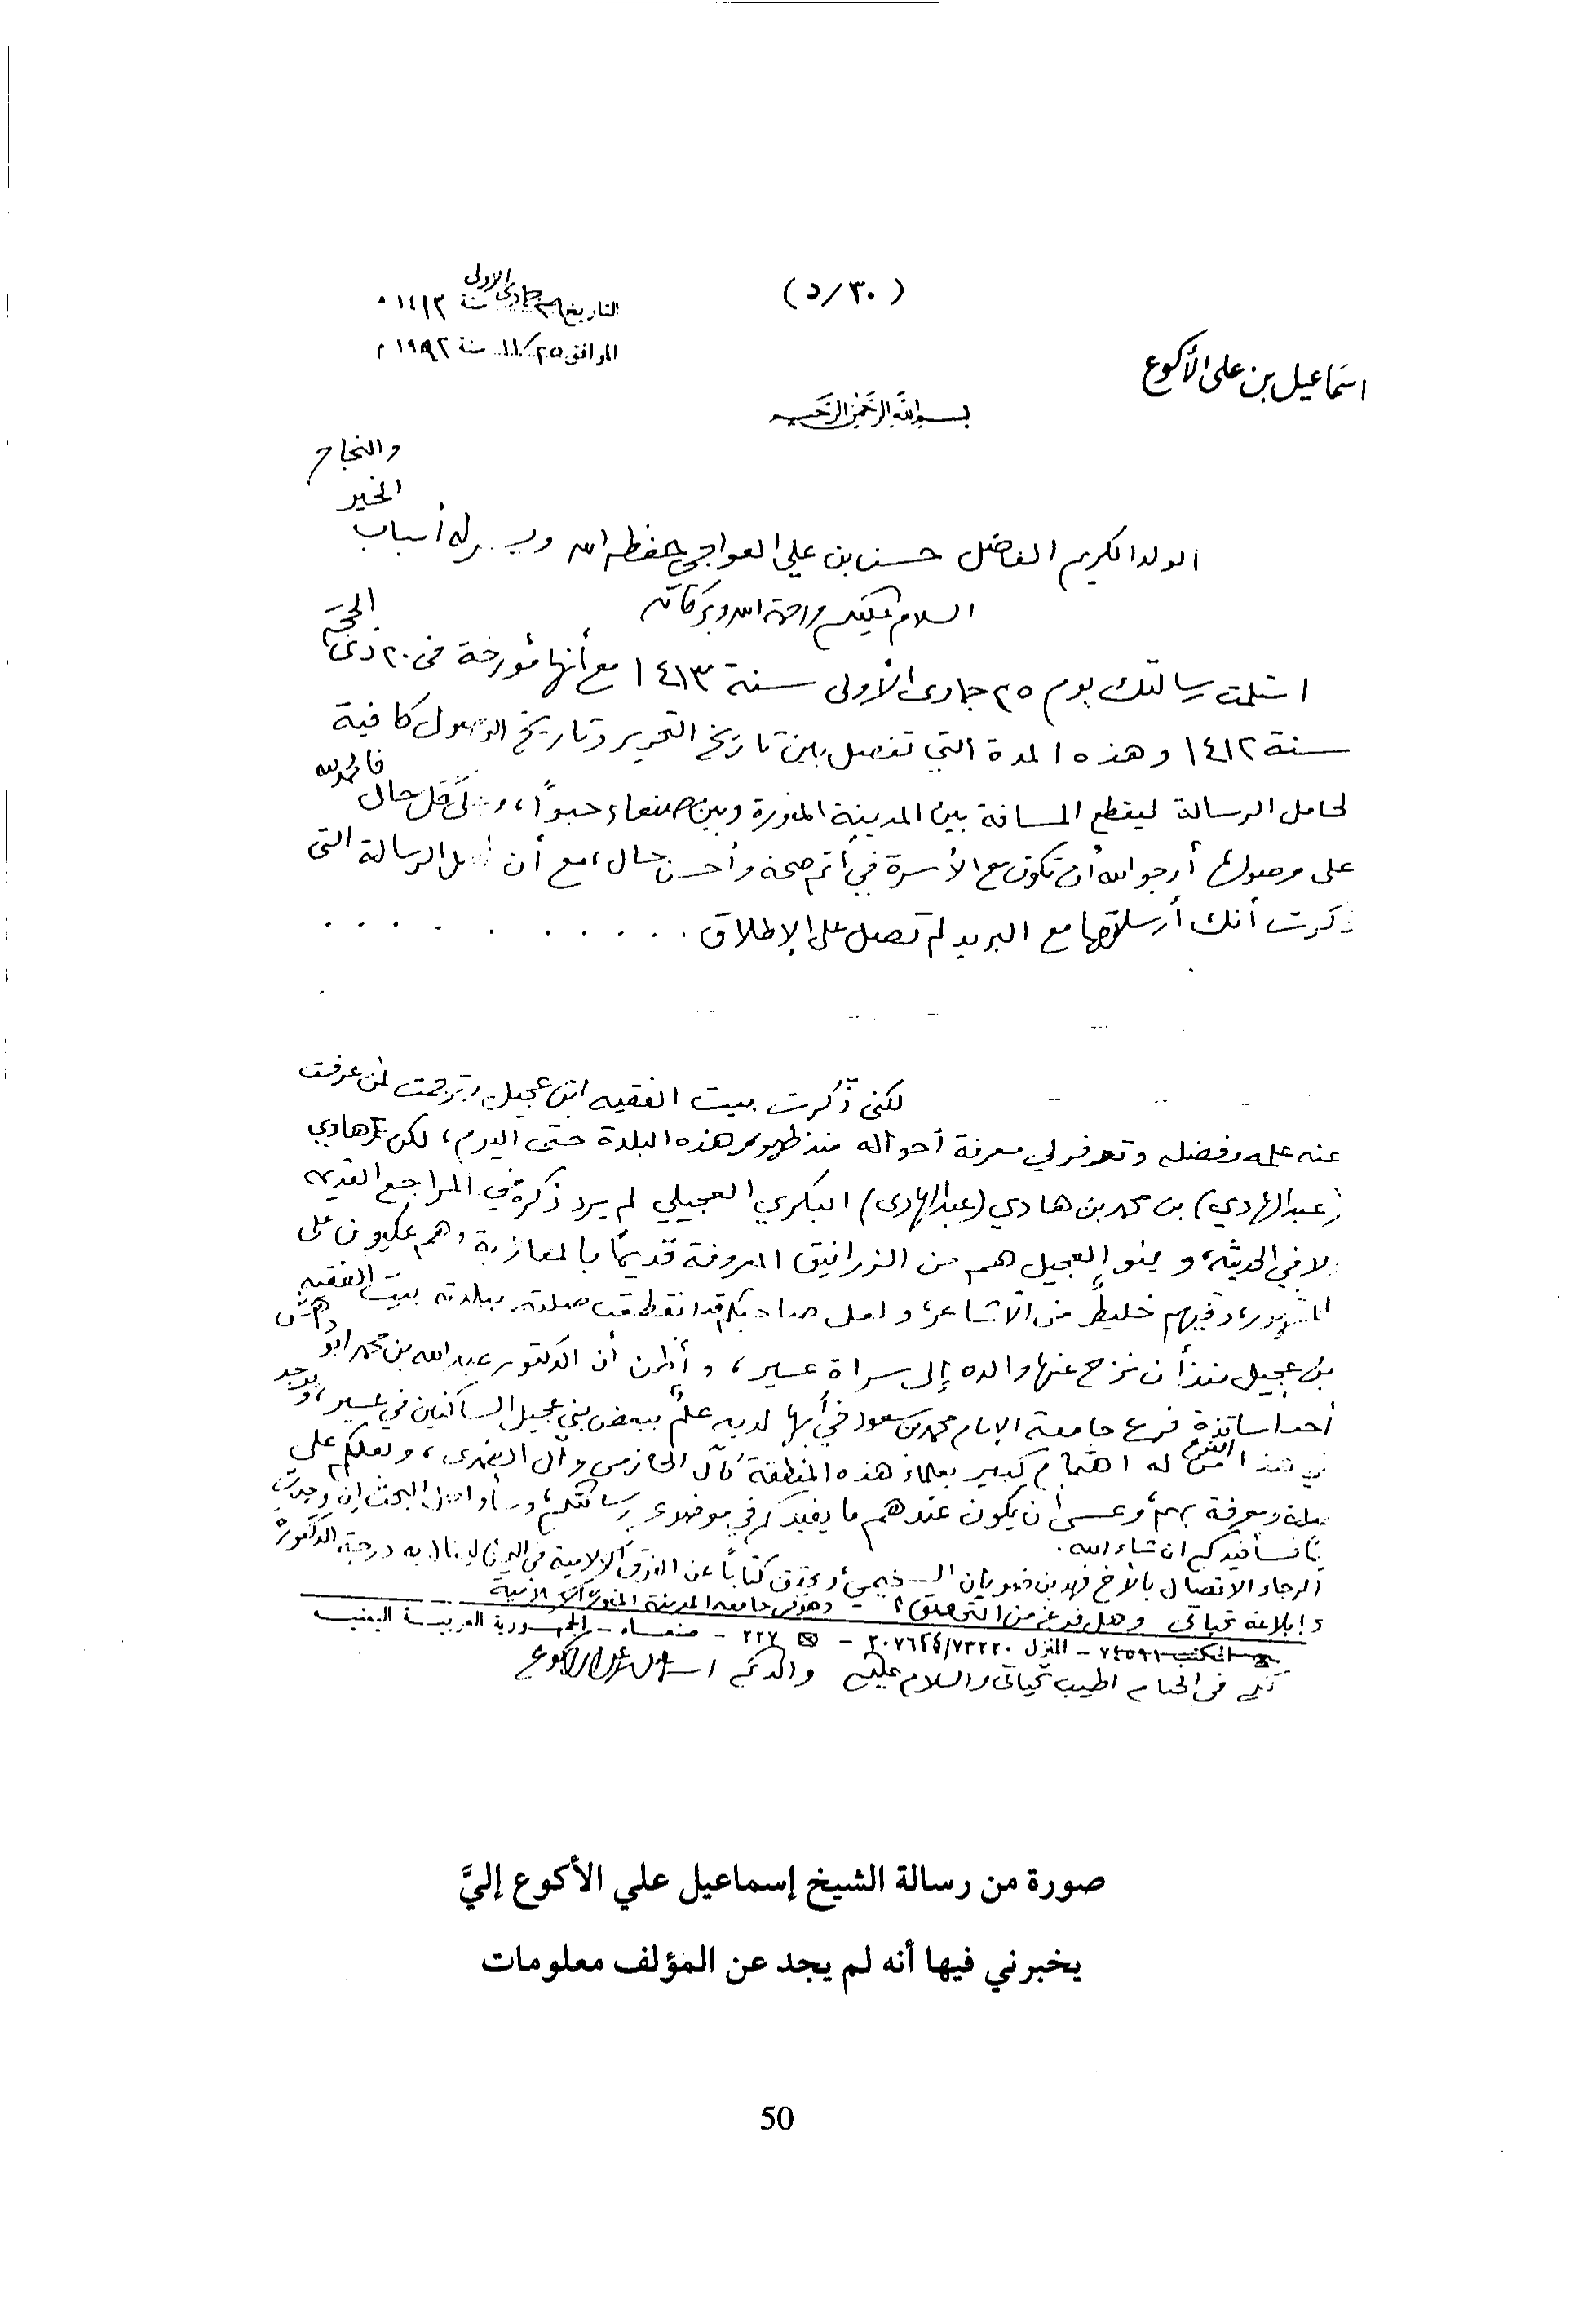 (٥/٣٠)
التاريخ ٣٠ جمادى الأولى سنة ١٤١٣ هـ
الموافق ٢٥/١١ سنة ١٩٩٢ م
اسماعيل بن علي الأكوع
بسم الله الرحمن الرحيم
الولد الكريم الفاضل حسن بن علي العواجي حفظه الله ويسر له أسباب الخير والنجاح
السلام عليكم ورحمة الله وبركاته
استلمت رسالتك يوم ٢٥ جمادى الأولى سنة ١٤١٣ مع أنها مؤرخة في ٢٠ ذي الحجة
سنة ١٤١٢ وهذه المدة التي تفصل بين تاريخ التحرير وتاريخ الوصول كافية
لحامل الرسالة ليقطع المسافة بين المدينة المنورة وبين صنعاء حبوًا، وعلى كل حال فالحمد لله
على وصولها أرجو الله أن تكون مع الأسرة في أتم صحة وأحسن حال، مع أن أصل الرسالة التي
ذكرت أنك أرسلتها مع البريد لم تصل على الإطلاق . . . . . . . . . .
لكني ذكرت بيت الفقيه ابن عجيل وترجمت لمن عرفت
عنه علمه وفضله وتوفر لي معرفة أحواله منذ ظهور هذه البلدة حتى اليوم، لكن هادي
(عبد الهادي) بن محمد بن هادي (عبد الهادي) البكري العجيلي لم يرد ذكره في المراجع القديمة
ولا في الحديثة، وبنو العجيل هم من الزرانيق المعروفة قديمًا بالمعازبة، وهم عكيون على
المشهور، وفيهم خليط من الأشاعر، ولعل صاحبكم قد انقطعت صلته ببلدته بيت الفقيه
بن عجيل منذ أن نزح عنها والده إلى سراة عسير، وأظن أن الدكتور عبد الله بن محمد أبو داهش
أحد أساتذة فرع جامعة الإمام محمد بن سعود في أبها لديه علم ببعض بني عجيل الساكنين في عسير، ويوجد
في هذا الفرع من له اهتمام كبير بعلماء هذه المنطقة كآل الحازمي وآل النعمي، ولعلكم على
صلة ومعرفة بهم، وعسى أن يكون عندهم ما يفيدكم في موضوع رسالتكم، وسأواصل البحث إن وجدت
شيئًا فسأفيدكم ان شاء الله.
الرجاء الاتصال بالأخ فهد بن ضويان السحيمي، ويحقق كتابًا عن الفرق الإسلامية في اليمن لينال به درجة الدكتوراه
وإبلاغه تحياتي وهل فرغ من التحقيق؟ وهو في جامعة المدينة المنورة الإسلامية
المكتب ٧٤٥٩١ – المنزل ٧٣٢٢٠/٢٠٧٦٢٤ – ٢٢٧ – صنعاء – الجمهورية العربية اليمنية
لكم في الختام اطيب تحياتي والسلام عليكم والدكم اسماعيل الأكوع
صورة من رسالة الشيخ إسماعيل علي الأكوع إليَّ
يخبرني فيها أنه لم يجد عن المؤلف معلومات
50